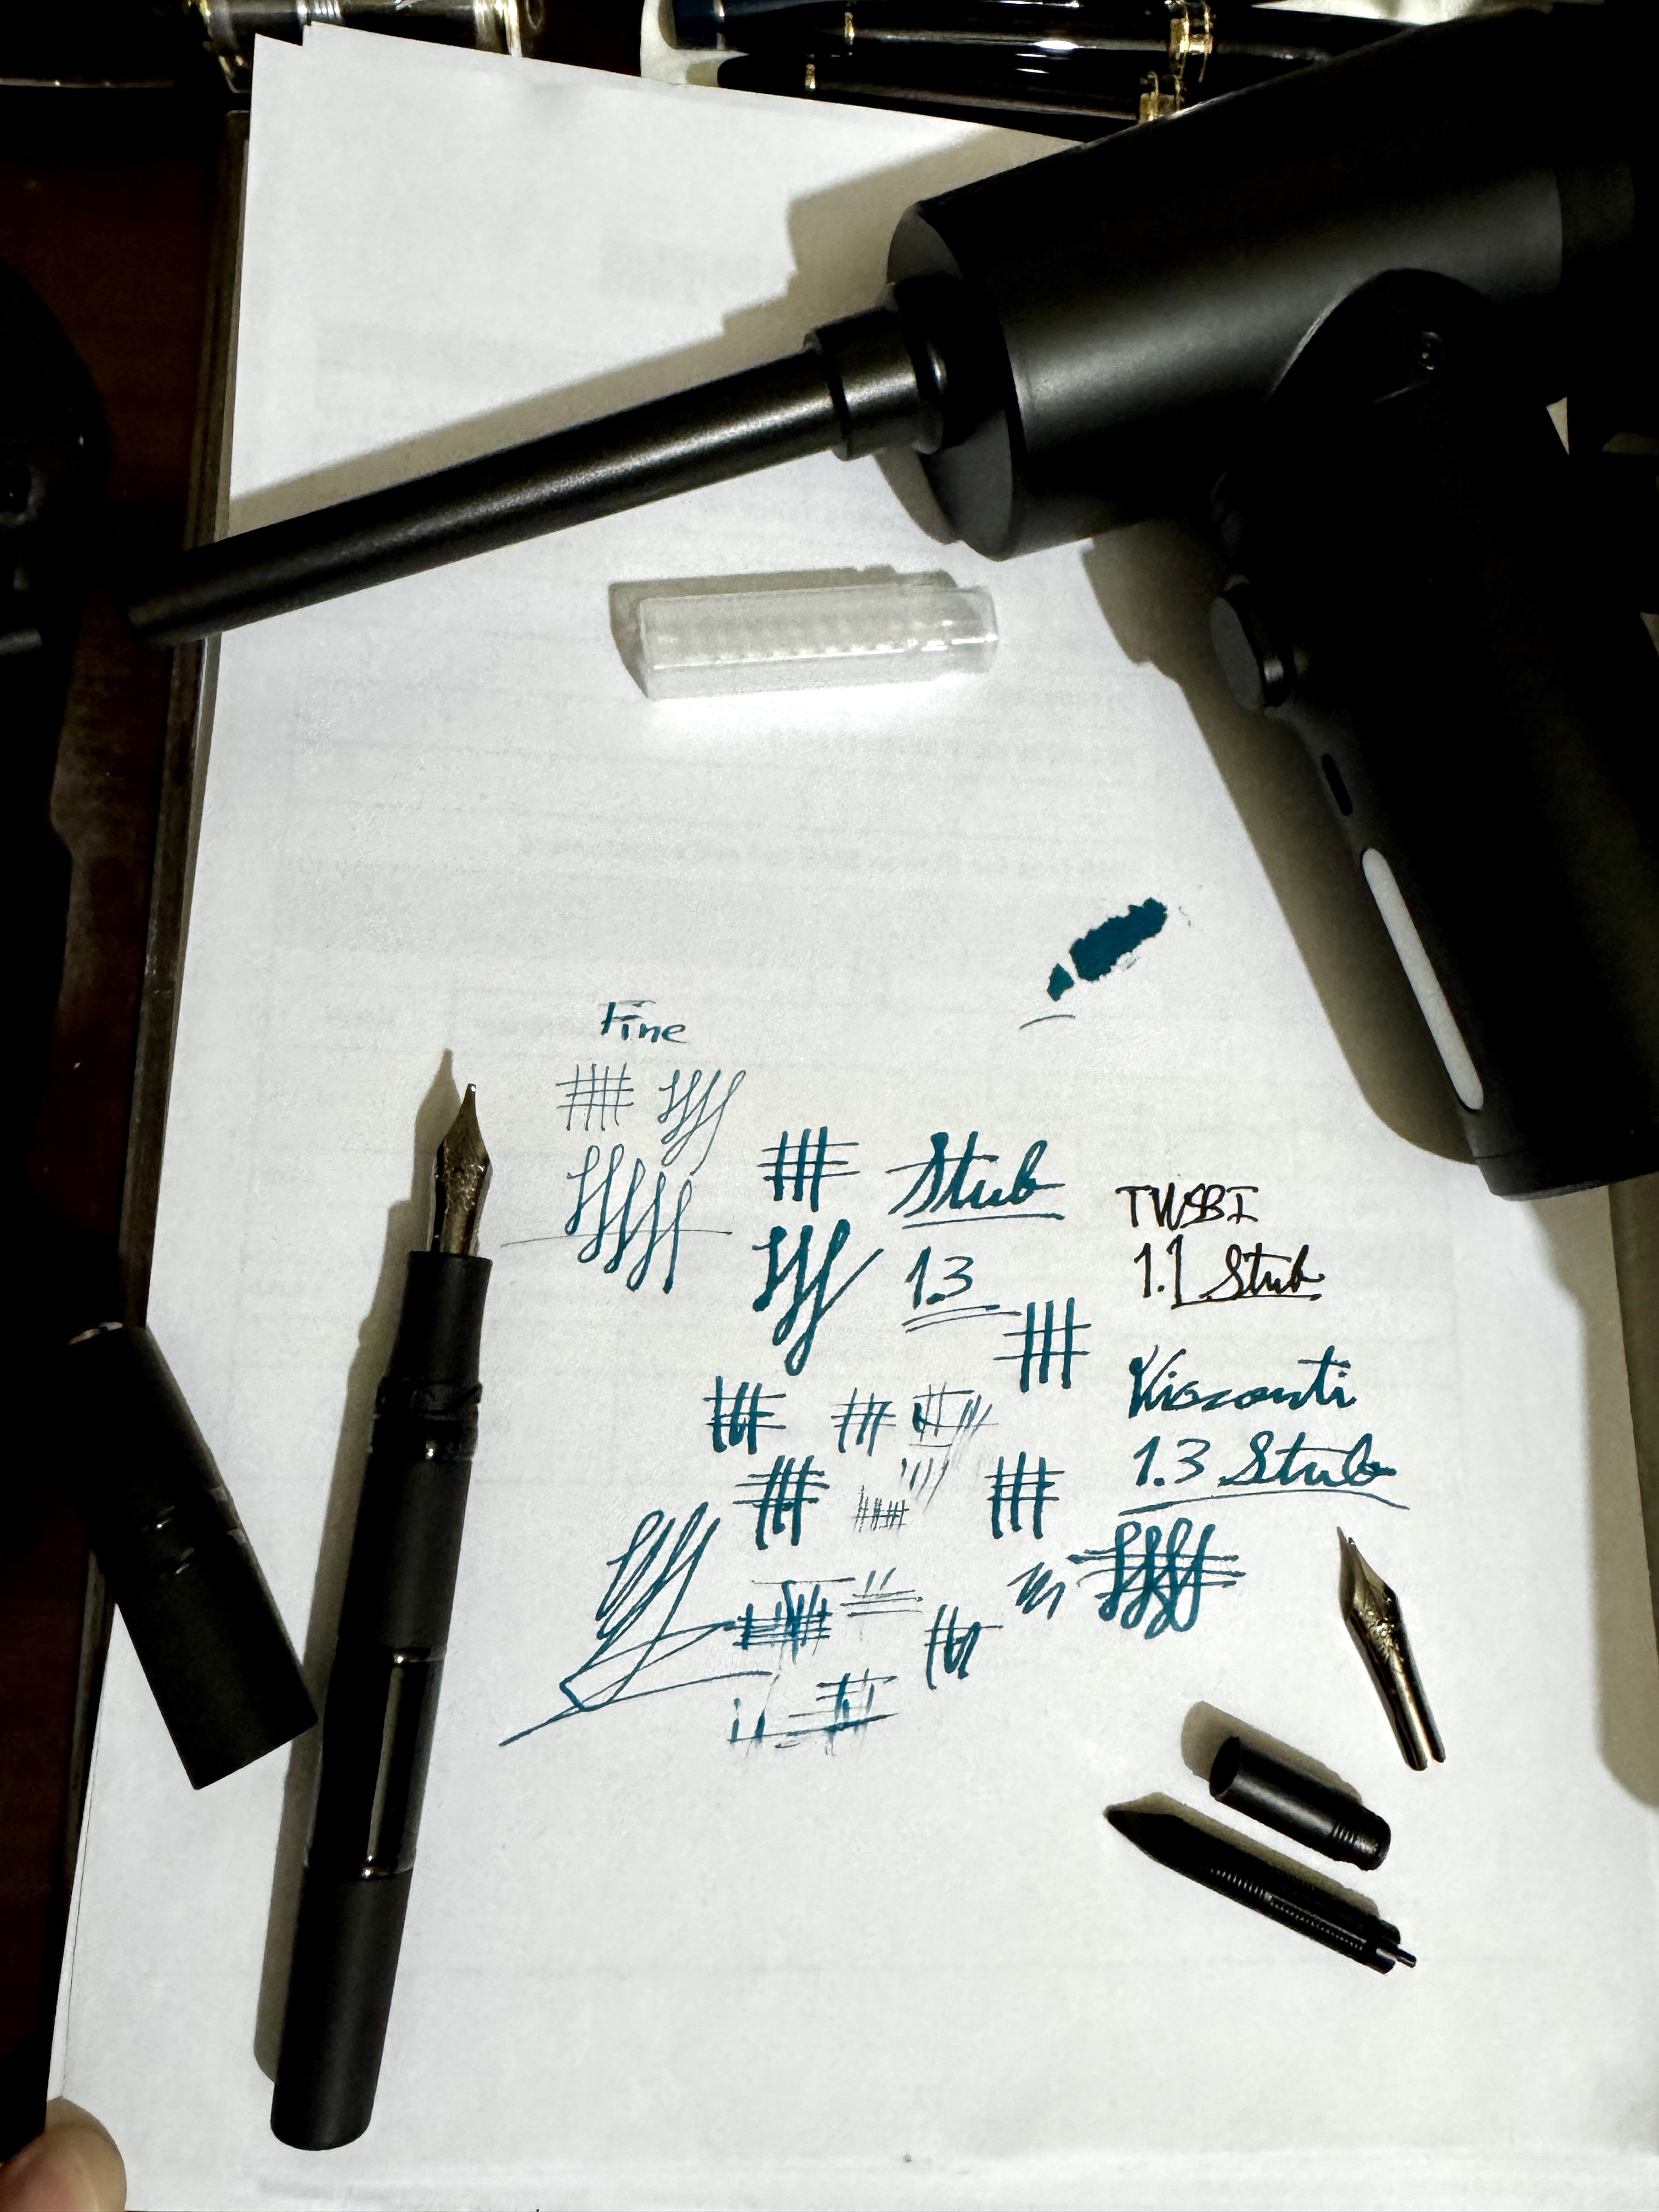 Fine
Stub
1.3
TWSBI
1.1 Stub
Visconti
1.3 Stub